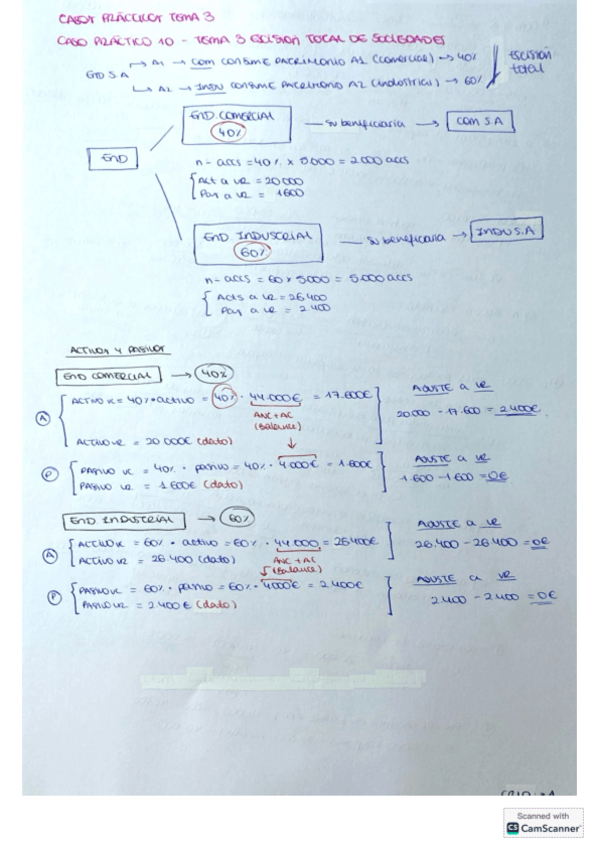 CASOS PRÁCTICOS TEMA 3
CASO PRÁCTICO 10 - TEMA 3 ESCISIÓN TOTAL DE SOCIEDADES
END S.A → A1 → COM CONSUME PATRIMONIO A1 (COMERCIAL) → 40%
→ A2 → INDU CONSUME PATRIMONIO A2 (INDUSTRIAL) → 60%
Escisión total
END COMERCIAL
40%
su beneficiaria → COM S.A
END
n- accs = 40% x 5000 = 2000 accs
Act a VR = 20000
Pas a VR = 1600
END INDUSTRIAL
60%
su beneficiaria → INDU S.A
n- accs = 60 x 5000 = 5000 accs
Acts a VR = 26400
Pas a VR = 2400
ACTIVOS Y PASIVOS
END COMERCIAL → 40%
A
ACTIVO VC = 40% · activo = 40% · 44000€ = 17.600€
ANC + AC
(Balance)
ACTIVO VR = 20000€ (dato)
AJUSTE a VR
20000 - 17.600 = 2400€
P
PASIVO VC = 40% · pasivo = 40% · 4000€ = 1.600€
PASIVO VR = 1600€ (dato)
AJUSTE a VR
1600 - 1600 = 0€
END INDUSTRIAL → 60%
A
ACTIVO VC = 60% · activo = 60% · 44000 = 26400€
ACTIVO VR = 26400 (dato)
ANC + AC
(Balance)
AJUSTE a VR
26.400 - 26400 = 0€
P
PASIVO VC = 60% · pasivo = 60% · 4000€ = 2.400€
PASIVO VR = 2.400€ (dato)
AJUSTE a VR
2.400 - 2400 = 0€
Scanned with
CS CamScanner